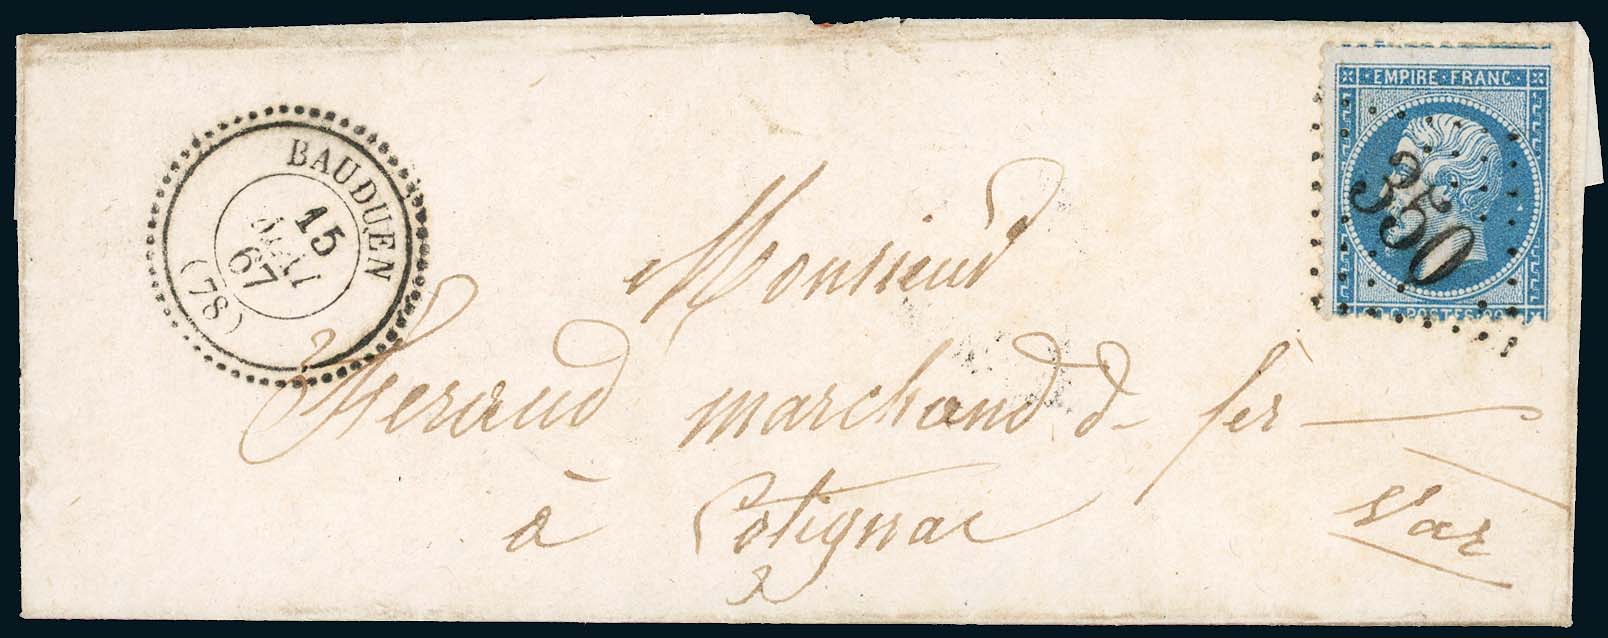 BAUDUEN
15
MAI
67
(78)
EMPIRE FRANC
350
POSTES
Monsieur
Heraud marchand d fer
à Cotignac
Var